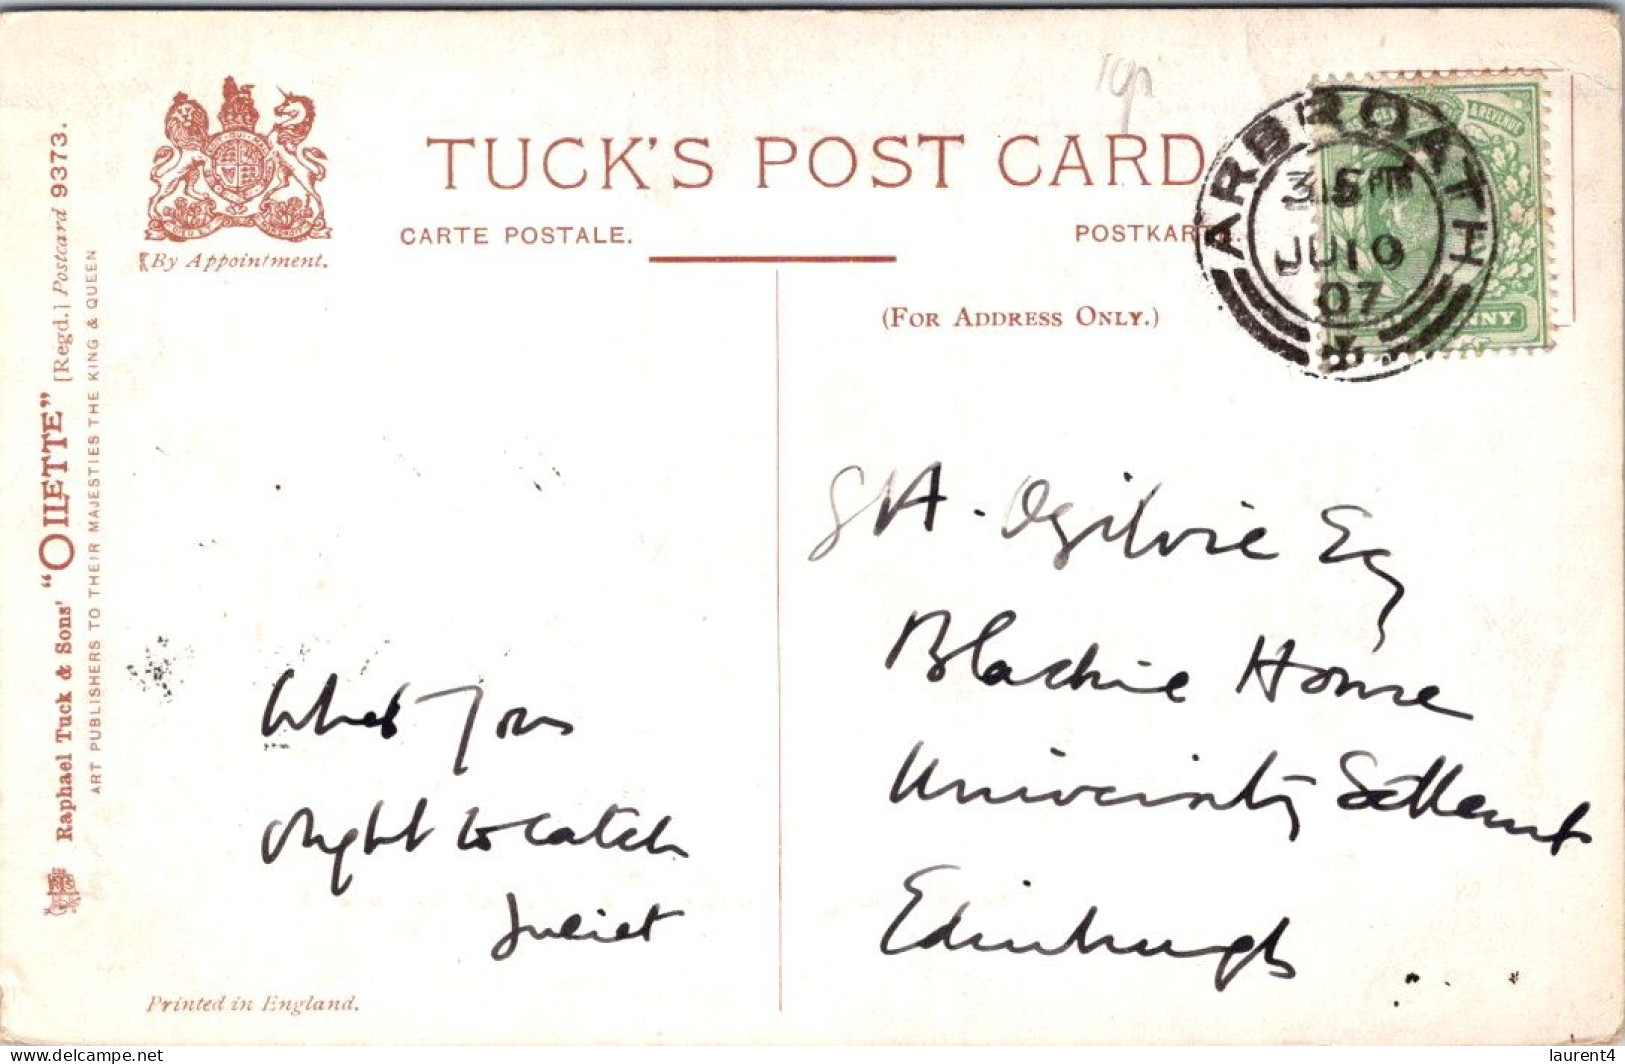 TUCK'S POST CARD
CARTE POSTALE.
POSTKARTE.
(FOR ADDRESS ONLY.)
By Appointment.
Raphael Tuck & Sons' "OILETTE" [Regd.] Postcard 9373.
ART PUBLISHERS TO THEIR MAJESTIES THE KING & QUEEN
ARBROATH
315 PM
JU 10
07
What you
ought to catch
Juliet
A. Ogilvie Esq
Blackie House
University Settlement
Edinburgh
Printed in England.
delcampe.net
laurent4